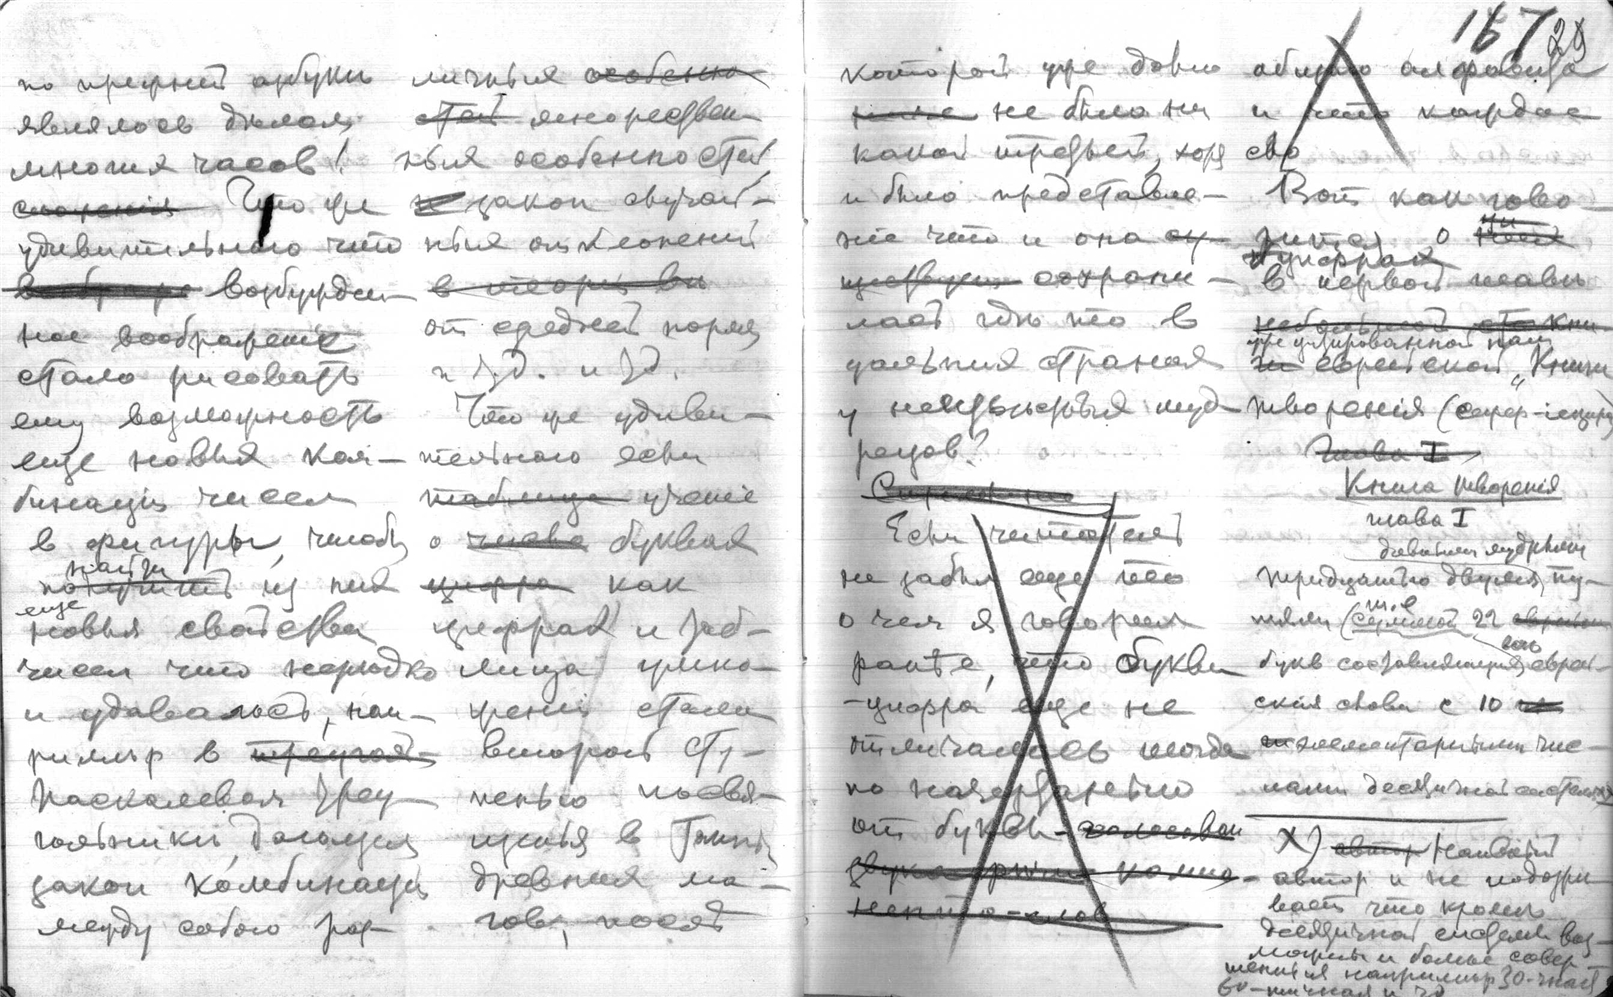 по прежней азбуки
являлось делом
многих часов!
Что же
удивительного что
возбужден-
ное воображение
стало рисовать
ему возможность
еще новыя ком-
бинации чисел
в фигуры, чтобы
найти
из них
еще
новыя свойства
чисел что нередко
и удавалось, нап-
ример в
Паскалевом треу-
гольники, дающем
закон комбинаций
между собою раз-
личныя особенно
стей множествен-
ныя особенностей,
закон случай-
ныя отклонений
в теории ве
от средней нормы
и т.д. и т.д.
Что же удиви-
тельного если
таблица учение
о числа буквах
цифра как
цифрах и таб-
лица умно-
жения стали
второй сту-
пенью посвя-
щенья в Тайны
древних ма-
гов, после
которой уже давно
не было ни
какой третьей, хотя
и было представле-
ние что и она су-
ществует сохрани-
лась где то в
дальних странах
у неизвестныя муд-
рецов?
Если читатель
не забыл еще того
о чем я говорил
ранее, что буквы
-цифры еще не
отличались тогда
по начертанию
от буквы-
167 29
общаго алфавита
и что каждое
сво
Вот как гово-
рится о
цифрах
в первой главе
небольшой
цитированной нами
еврейской „Книги
творения (сефер-иецира)
Глава I
Книга творения
глава I
дивными мудрыми
Тридцатью двумя пу-
тями (суммой 22
т.е
букв составляющих еврей-
ския слова с 10
элементарными чис-
лами десятичной системы
X) автор Наивный
автор и не подозре-
вает что кроме
десятичной системы воз-
можны и более совер-
шенныя например 30-чная
60-тичная и т.д.